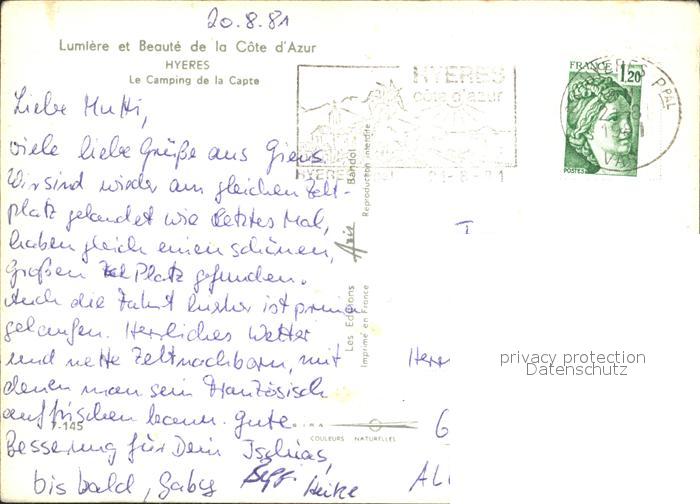 20.8.81
Lumière et Beauté de la Côte d'Azur
HYERES
Le Camping de la Capte
Liebe Mutti,
viele liebe Grüße aus Giens.
Wir sind wieder am gleichen Zelt-
platz gelandet wie letztes Mal,
haben gleich einen schönen,
großen Platz gefunden.
Auch die Fahrt hierher ist prima
gelaufen. Herrliches Wetter
und nette Zeltnachbarn, mit
denen man sein Französisch
auffrischen kann. Gute
Besserung für Dein Ischias,
bis bald, Gaby Heike
HYERES
côte d'azur
HYERES
21-8-81
FRANCE 1,20
POSTES
HYERES PPAL
VAR
Les Editions Aris Bandol
Imprimé en France Reproduction interdite
7-145
COULEURS NATURELLES
Herr
privacy protection
Datenschutz
6
AL